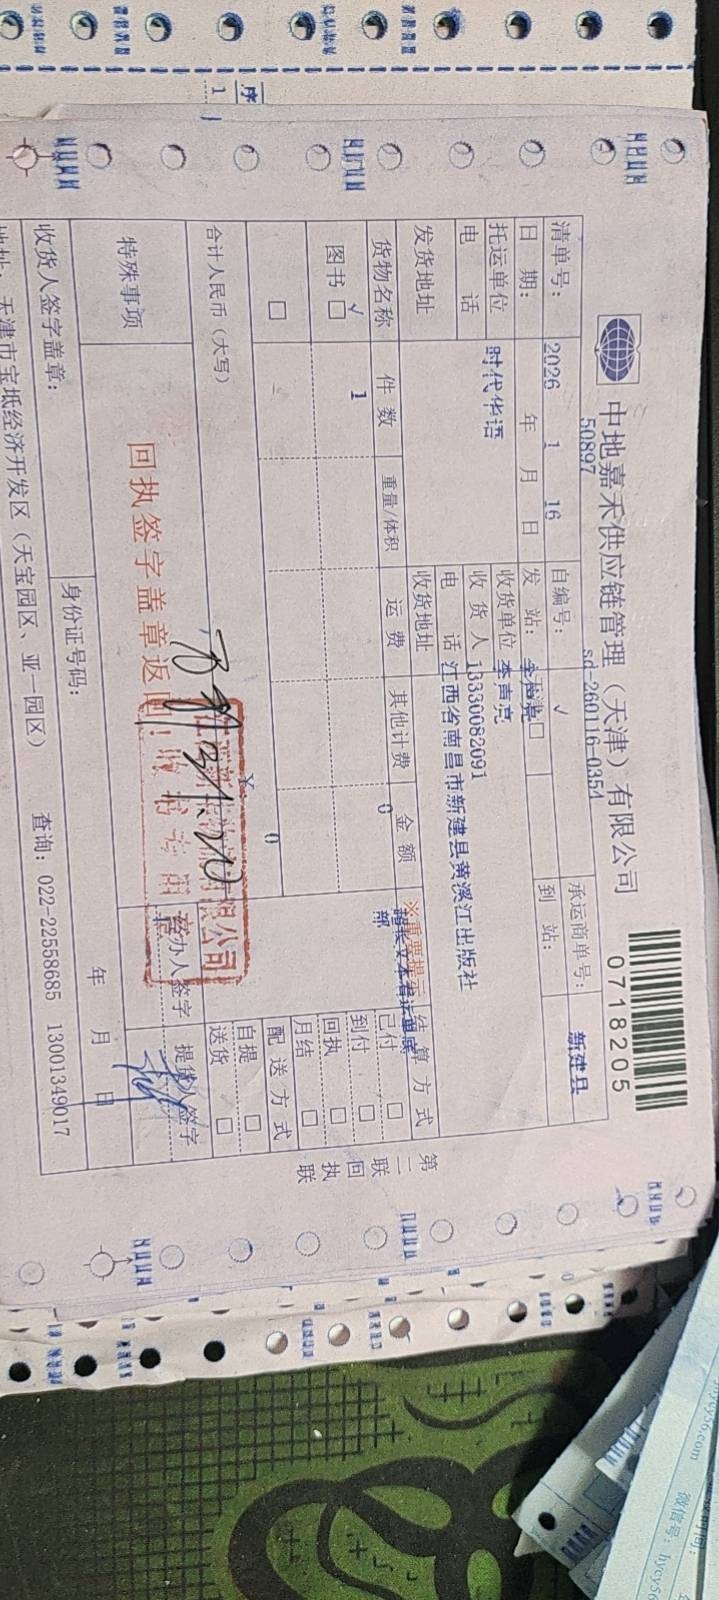 中地嘉禾供应链管理（天津）有限公司
0718205
50897
sd-260116-0354
清单号：
自编号：
承运商单号：
新建县
日 期：
2026 年 1 月 16 日
发 站：
到 站：
托运单位
时代华语
收货单位
李青亮
收 货 人
13330082091
电 话
电 话
江西省南昌市新建县黄溪江出版社
发货地址
收货地址
货物名称
件 数
重量/体积
运 费
其他计费
金 额
※重要提示
结 算 方 式
图书 □ √
1
0
部
已付 □
到付 □
回执 □
月结 □
□
0
配 送 方 式
合计人民币（大写）
￥
自提 □
送货 □
特殊事项
回执签字盖章返回！
收书专用
限公司
经办人签字
提货人签字
收货人签字盖章：
身份证号码：
年 月 日
天津市宝坻经济开发区（天宝园区、亚一园区）
查询：022-22558685 13001349017
第二联 回执联
序
1
微信号：hycy56